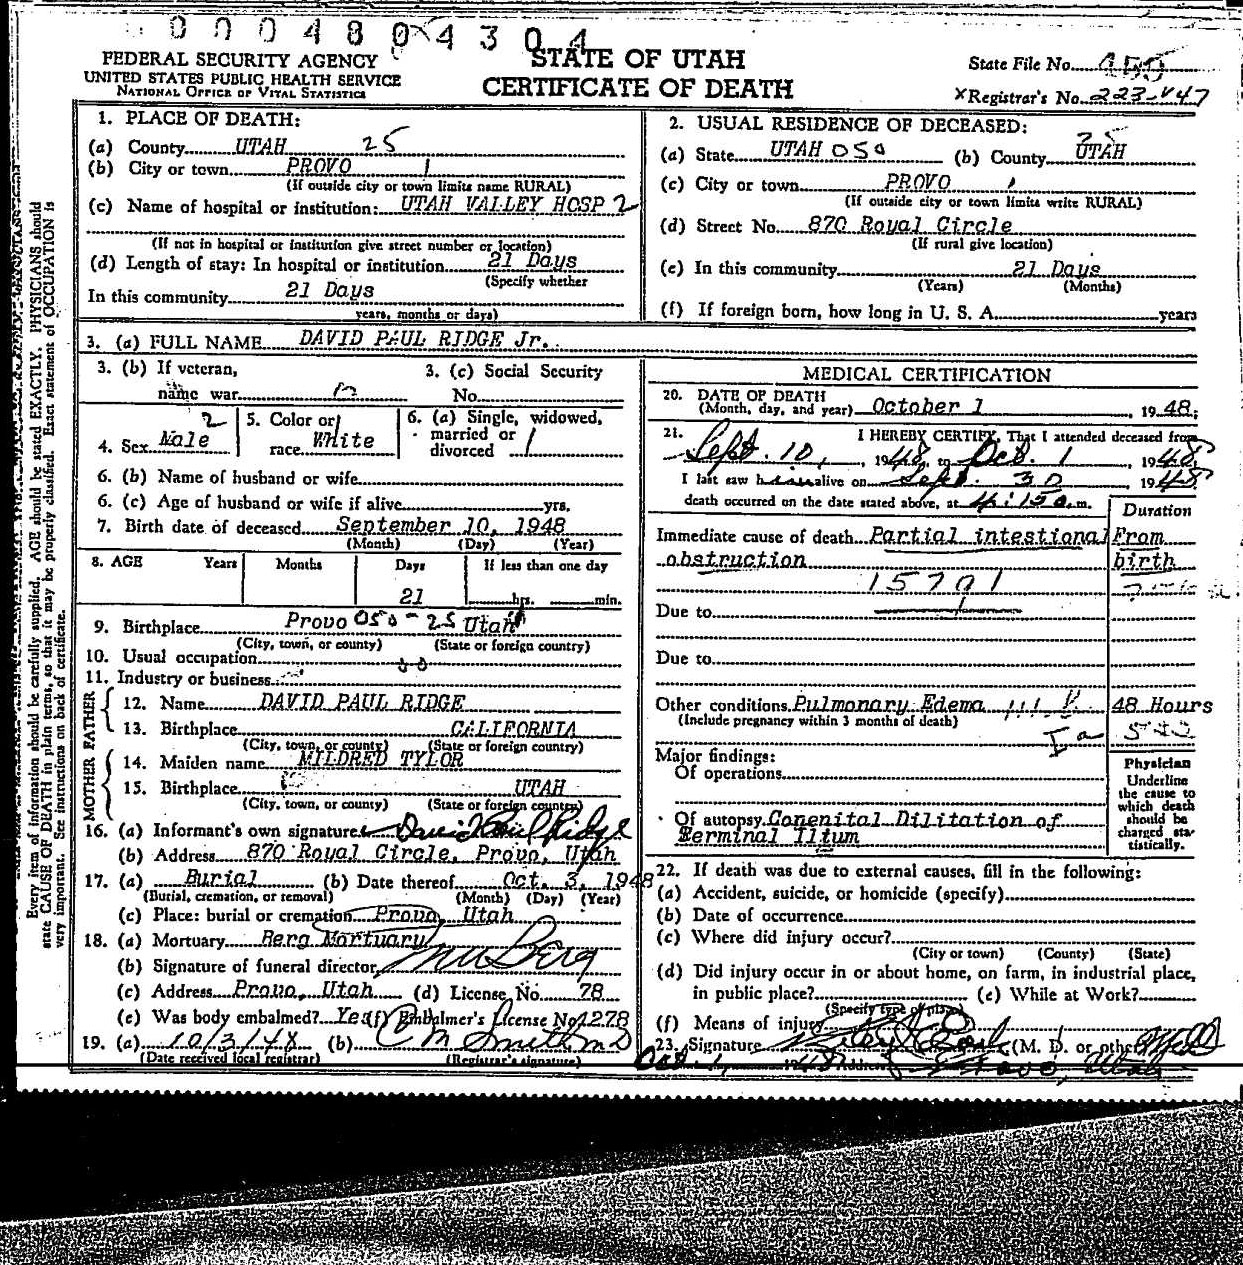 0004804304
FEDERAL SECURITY AGENCY
UNITED STATES PUBLIC HEALTH SERVICE
NATIONAL OFFICE OF VITAL STATISTICS
STATE OF UTAH
CERTIFICATE OF DEATH
State File No.
X Registrar's No. 223-447
1. PLACE OF DEATH:
(a) County UTAH 25
(b) City or town PROVO 1
(If outside city or town limits name RURAL)
(c) Name of hospital or institution: UTAH VALLEY HOSP 2
(If not in hospital or institution give street number or location)
(d) Length of stay: In hospital or institution 21 Days
(Specify whether
In this community 21 Days
years, months or days)
2. USUAL RESIDENCE OF DECEASED:
25
(a) State UTAH 050 (b) County UTAH
(c) City or town PROVO
(If outside city or town limits write RURAL)
(d) Street No. 870 Royal Circle
(If rural give location)
(e) In this community 21 Days
(Years) (Months)
(f) If foreign born, how long in U. S. A. years
3. (a) FULL NAME DAVID PAUL RIDGE Jr.
3. (b) If veteran,
name war
3. (c) Social Security
No.
2
4. Sex Male
5. Color or
race White
6. (a) Single, widowed,
married or
divorced
6. (b) Name of husband or wife
6. (c) Age of husband or wife if alive yrs.
7. Birth date of deceased September 10, 1948
(Month) (Day) (Year)
8. AGE Years Months Days If less than one day
21 hrs. min.
9. Birthplace Provo 050-25 Utah
(City, town, or county) (State or foreign country)
10. Usual occupation
11. Industry or business
FATHER
12. Name DAVID PAUL RIDGE
13. Birthplace CALIFORNIA
(City, town, or county) (State or foreign country)
MOTHER
14. Maiden name MILDRED TYLOR
15. Birthplace UTAH
(City, town, or county) (State or foreign country)
16. (a) Informant's own signature David Paul Ridge
(b) Address 870 Royal Circle, Provo, Utah
17. (a) Burial (b) Date thereof Oct. 3, 1948
(Burial, cremation, or removal) (Month) (Day) (Year)
(c) Place: burial or cremation Provo, Utah
18. (a) Mortuary Berg Mortuary
(b) Signature of funeral director Berg
(c) Address Provo, Utah (d) License No. 78
(e) Was body embalmed? Yes (f) Embalmer's License No. 1278
19. (a) 10/3/48 (b) C M Smith MD
(Date received local registrar) (Registrar's signature)
MEDICAL CERTIFICATION
20. DATE OF DEATH
(Month, day, and year) October 1, 1948;
21. I HEREBY CERTIFY, That I attended deceased from
Sept. 10, 1948, to Oct. 1, 1948
I last saw him alive on Sept. 30 1948
death occurred on the date stated above, at 4:15 a. m.
Duration
Immediate cause of death Partial intestional From
obstruction birth
15701
Due to
Due to
Other conditions Pulmonary Edema 48 Hours
(Include pregnancy within 3 months of death)
Ia
Major findings:
Of operations
Of autopsy Conenital Dilitation of
Terminal Ilium
Physician
Underline
the cause to
which death
should be
charged sta-
tistically.
22. If death was due to external causes, fill in the following:
(a) Accident, suicide, or homicide (specify)
(b) Date of occurrence
(c) Where did injury occur?
(City or town) (County) (State)
(d) Did injury occur in or about home, on farm, in industrial place,
in public place? (e) While at Work?
(Specify type of place)
(f) Means of injury
23. Signature (M. D. or other)
Oct 1, 1948 Address Provo, Utah
Every item of information should be carefully supplied. AGE should be stated EXACTLY. PHYSICIANS should
state CAUSE OF DEATH in plain terms, so that it may be properly classified. Exact statement of OCCUPATION is
very important. See instructions on back of certificate.